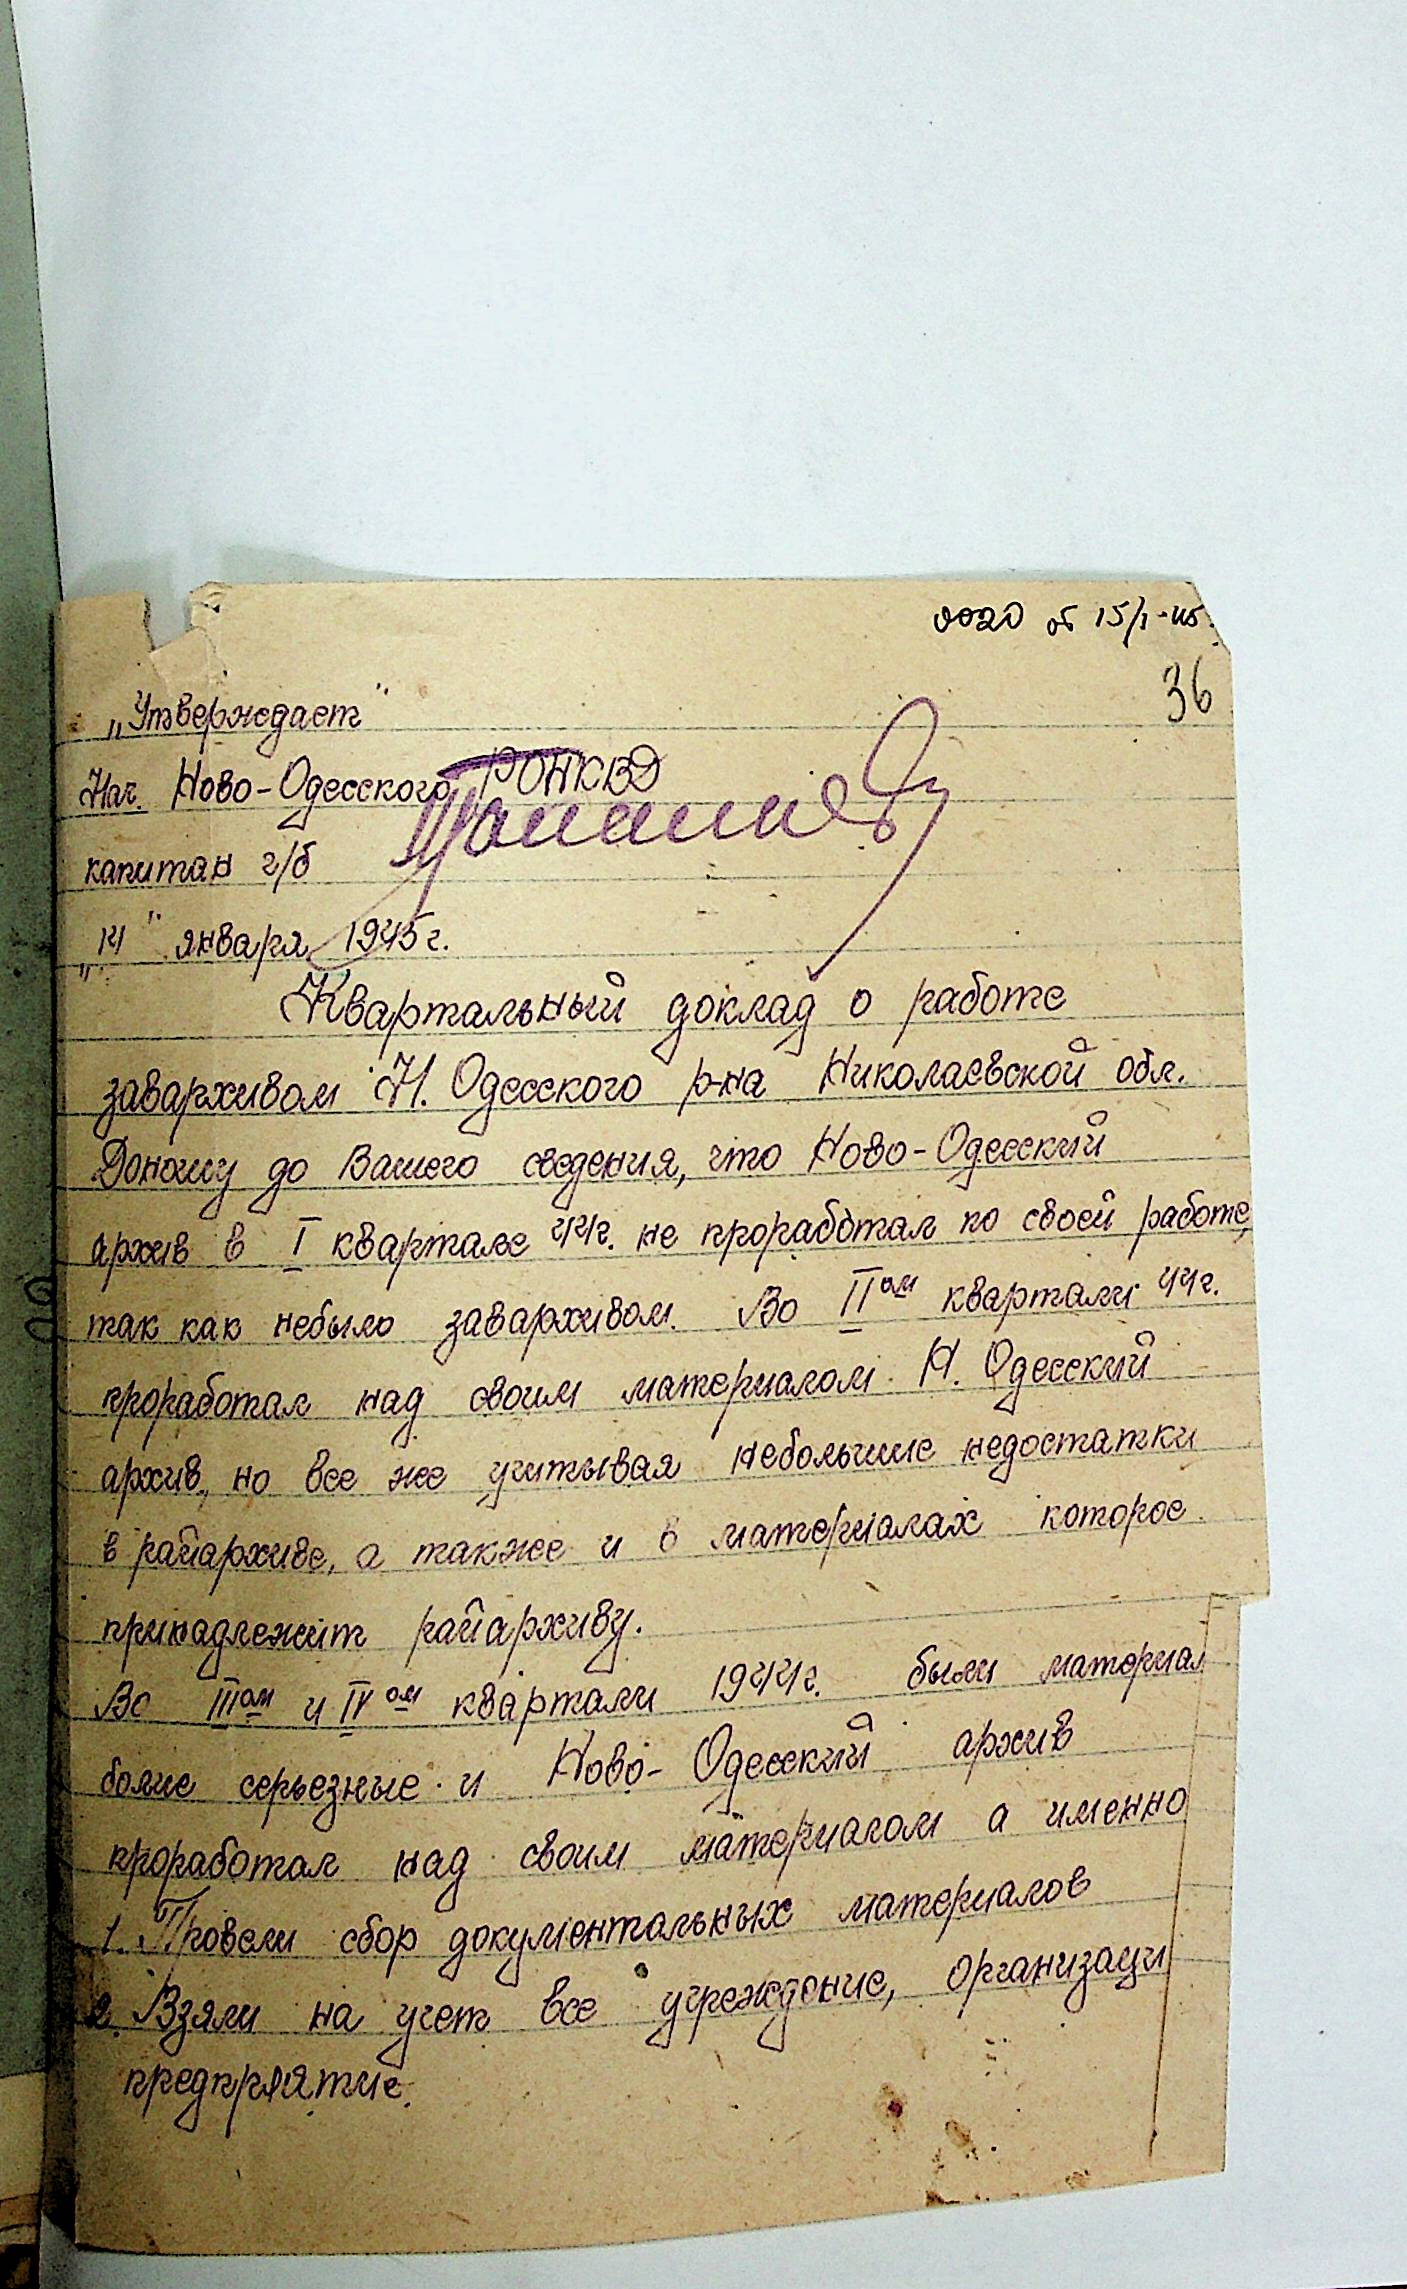 0020 от 15/I-45.
36
„Утверждает"
Нач. Ново-Одесского РОНКВД
капитан г/б
„14" января 1945 г.
Квартальный доклад о работе
завархивом Н. Одесского р-на Николаевской обл.
Доношу до Вашего сведения, что Ново-Одесский
архив в I квартале 44г. не проработал по своей работе,
так как небыло завархивом. Во II ом квартали 44г.
проработал над своим материалом Н. Одесский
архив, но все же учитывая небольшие недостатки
в райархиве, а также и в материалах которое
принадлежит райархиву.
Во III ом и IV ом квартали 1944г. были материал
более серьезные и Ново-Одесский архив
проработал над своим материалом а именно
1. Провели сбор документальных материалов
2. Взяли на учет все учреждение, организаци
предприятие.